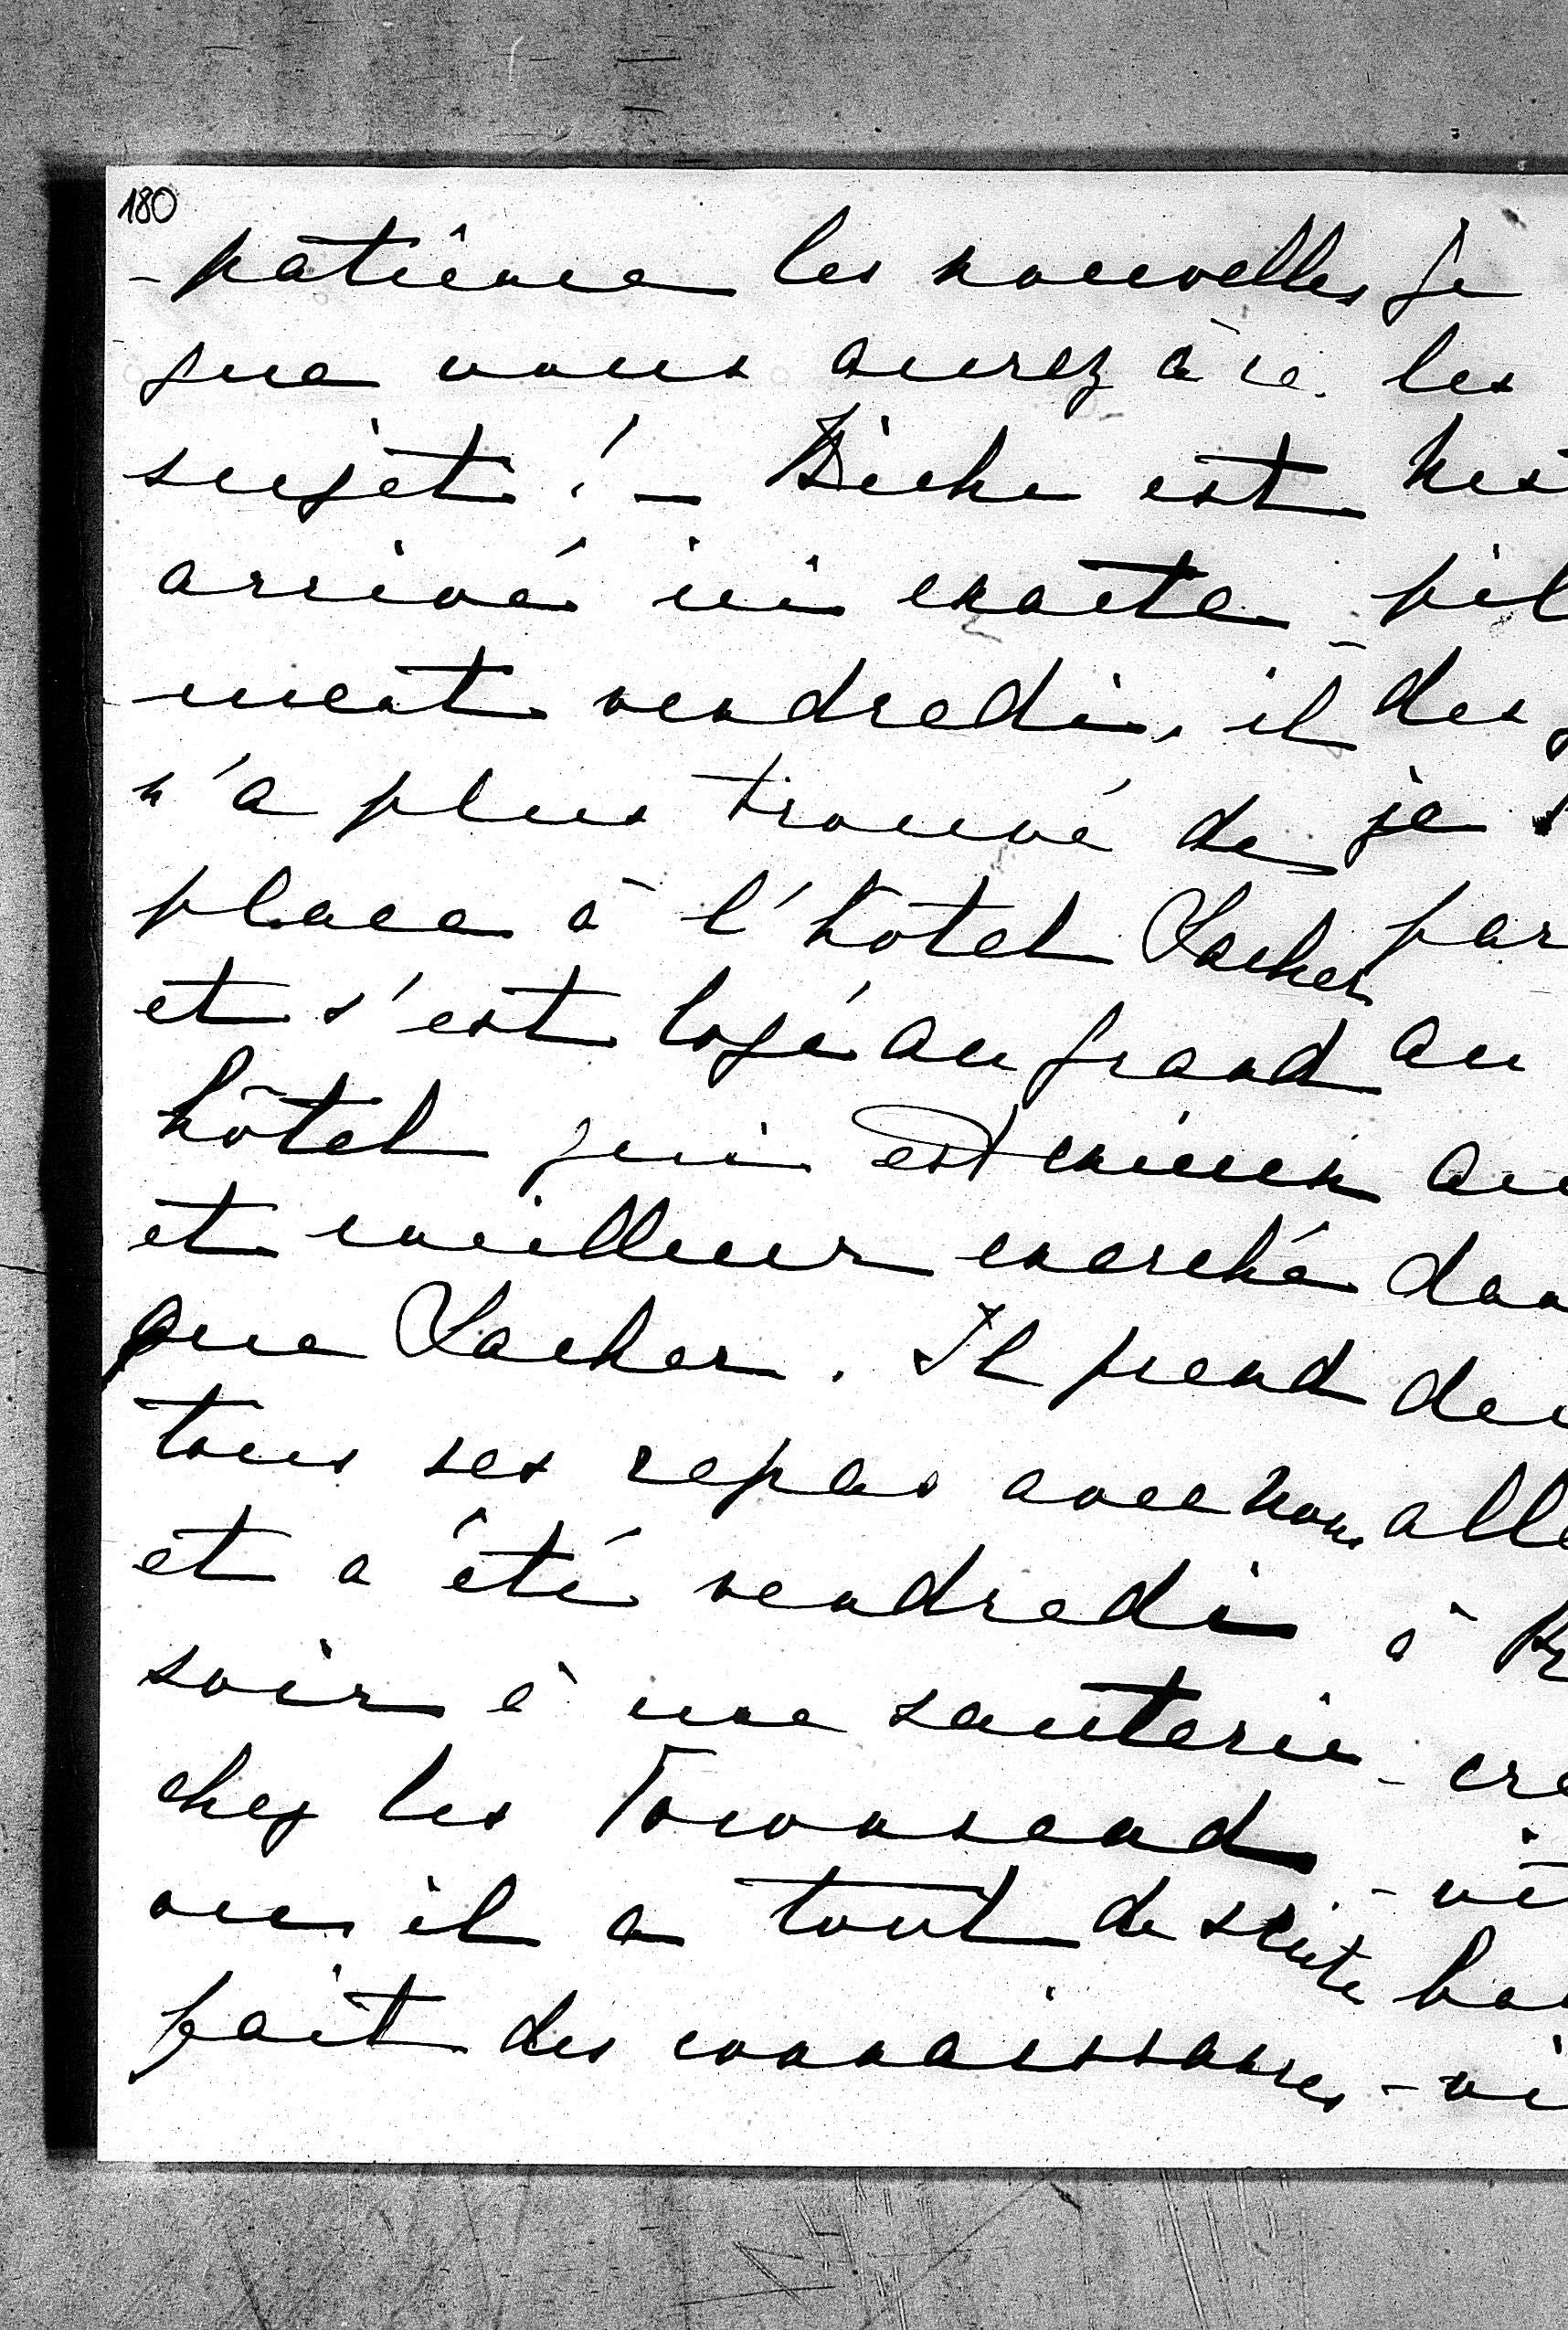 180
-patience les nouvelles
que vous aurez à ce
sujet! – Diche est
arrivé ici exacte-
ment vendredi, il
n'a plus trouvé de
place à l'hôtel Sacher
et s'est logé au grand
hôtel qui est mieux
et meilleur marché
que Sacher. Il prend
tous ses repas avec nous
et a été vendredi
soir à une sauterie
chez les Townsend
où il a tout de suite
fait des connaissances
les
je
par
au
à